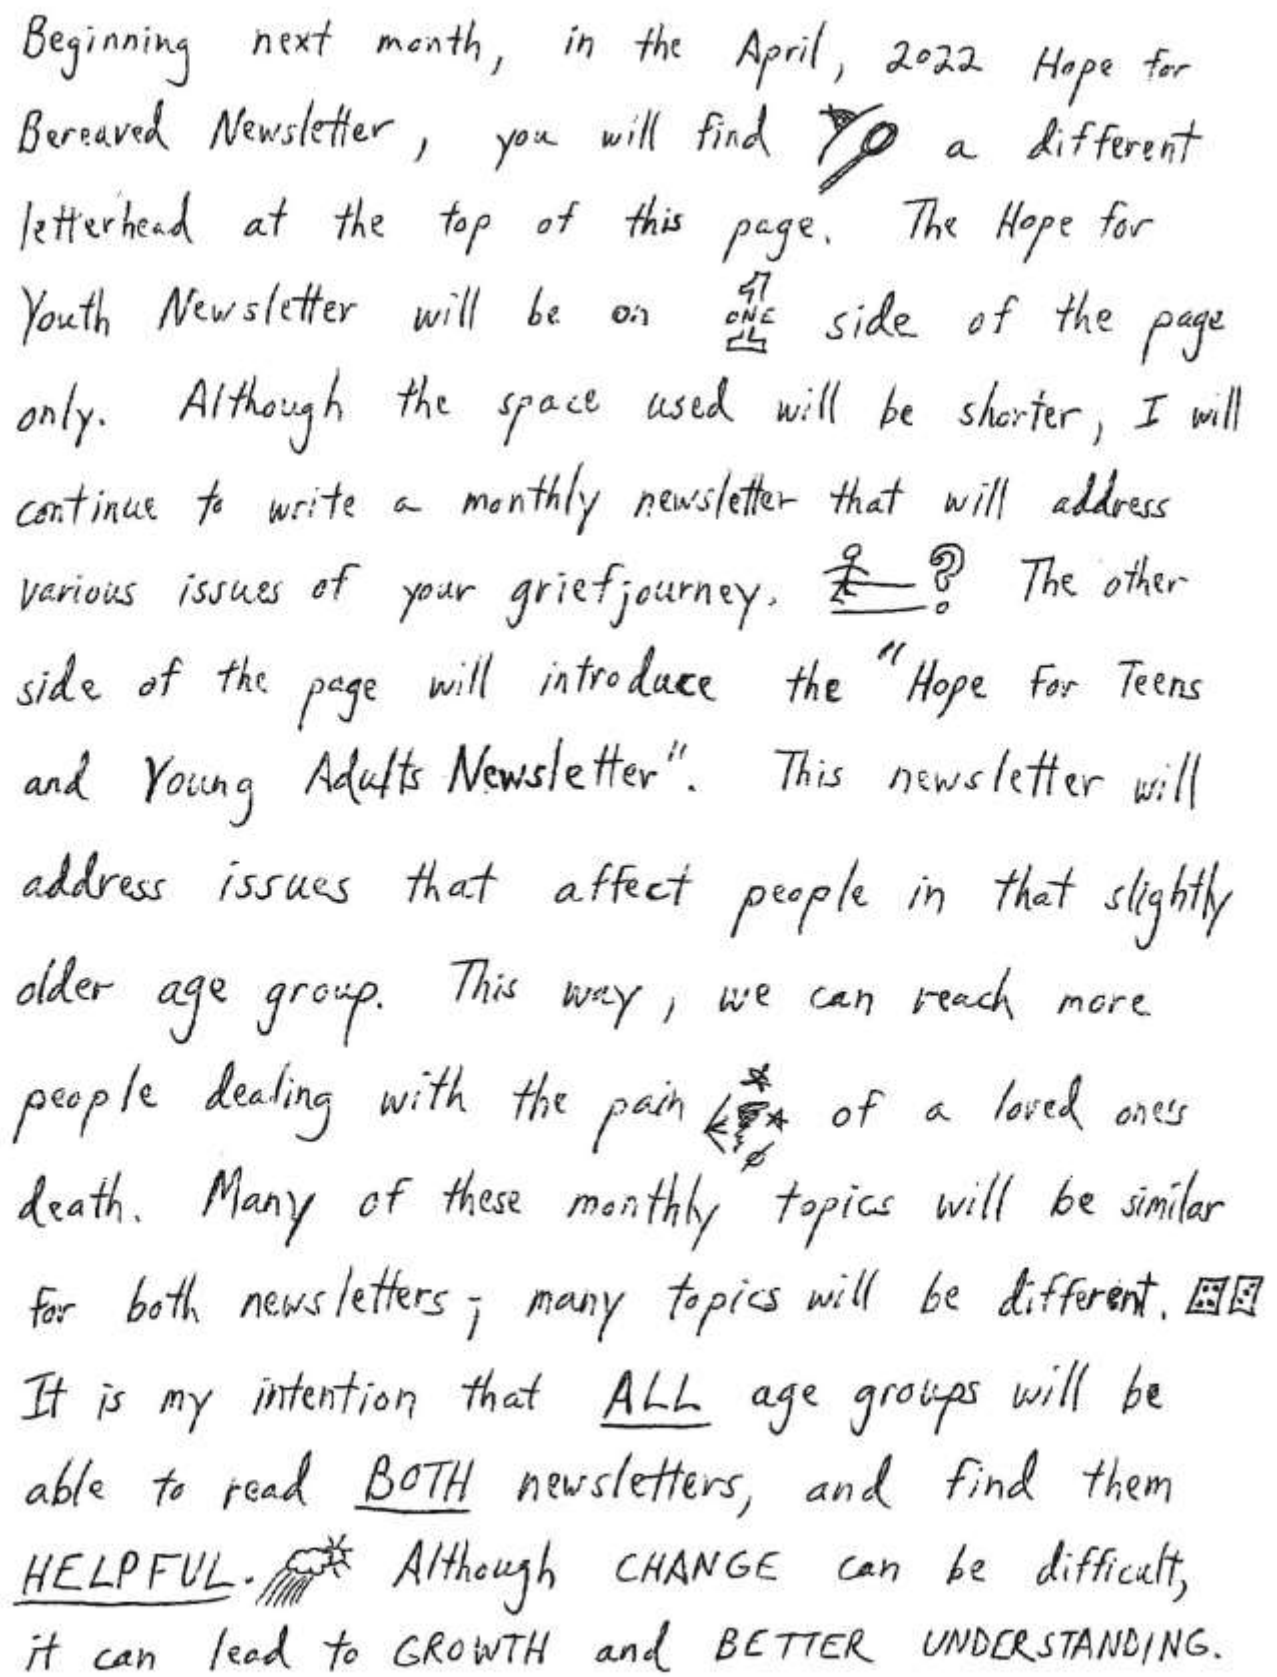 Beginning next month, in the April, 2022 Hope for
Bereaved Newsletter, you will find a different
letterhead at the top of this page. The Hope for
Youth Newsletter will be on 1 ONE side of the page
only. Although the space used will be shorter, I will
continue to write a monthly newsletter that will address
various issues of your grief journey. ? The other
side of the page will introduce the "Hope For Teens
and Young Adults Newsletter". This newsletter will
address issues that affect people in that slightly
older age group. This way, we can reach more
people dealing with the pain of a loved one's
death. Many of these monthly topics will be similar
for both newsletters; many topics will be different.
It is my intention that ALL age groups will be
able to read BOTH newsletters, and find them
HELPFUL. Although CHANGE can be difficult,
it can lead to GROWTH and BETTER UNDERSTANDING.